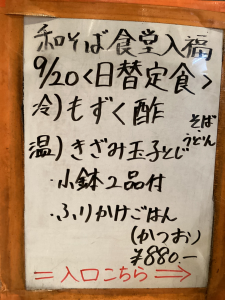 和そば食堂入福
9/20<日替定食>
冷)もずく酢
温)きざみ玉子とじ
そば
・
うどん
・小鉢2品付
・ふりかけごはん
(かつお)
¥880.-
＝入口こちら⇒